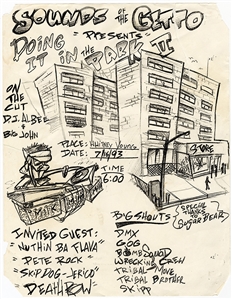 SOUNDS OF THE GETTO
"PRESENTS"
DOING IT IN THE PARK II
ON THE CUT
D.J. ALBEE
BIG JOHN
PLACE: WHITNEY YOUNG
DATE: 7/16/93
TIME 6:00
STORE
INVITED GUEST:
"NUTHIN BA FLAVA"
"PETE ROCK"
"SKIP DOG-JERICO"
"DEATHROW"
BIG SHOUTS
DMX
GOG
BOMB SQUAD
WRECKING CREW
TRIBAL MOVE
TRIBAL BROTHER
SKIPP
SPECIAL THANKS TO SUGAR BEAR